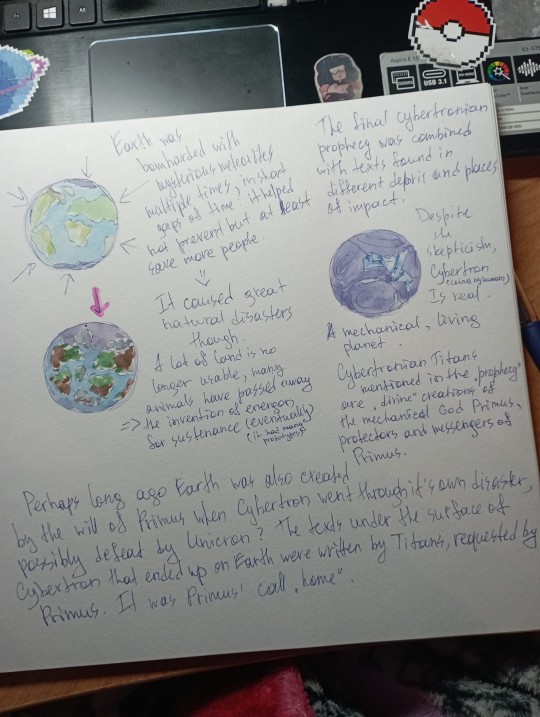 Fn
Alt
Aspire E 15
USB 3.1
Earth was
bombarded with
mysterious meteorites
multiple times, in short
gaps of time. It helped
not prevent but at least
save more people.
It caused great
natural disasters
though.
A lot of land is no
longer usable, many
animals have passed away
=> the invention of energon
for sustenance (eventually)
(it had many
prototypes)
The final Cybertronian
prophecy was combined
with texts found in
different debris and places
of impact.
Despite
the
skepticism,
Cybertron
Is real.
A mechanical, living
planet.
Cybertronian Titans
mentioned in the „prophecy"
are „divine" creations of
the mechanical God Primus,
protectors and messengers of
Primus.
Perhaps long ago Earth was also created
by the will of Primus when Cybertron went through it's own disaster,
possibly defeat by Unicron? The texts under the surface of
Cybertron that ended up on Earth were written by Titans, requested by
Primus. It was Primus' call „home".